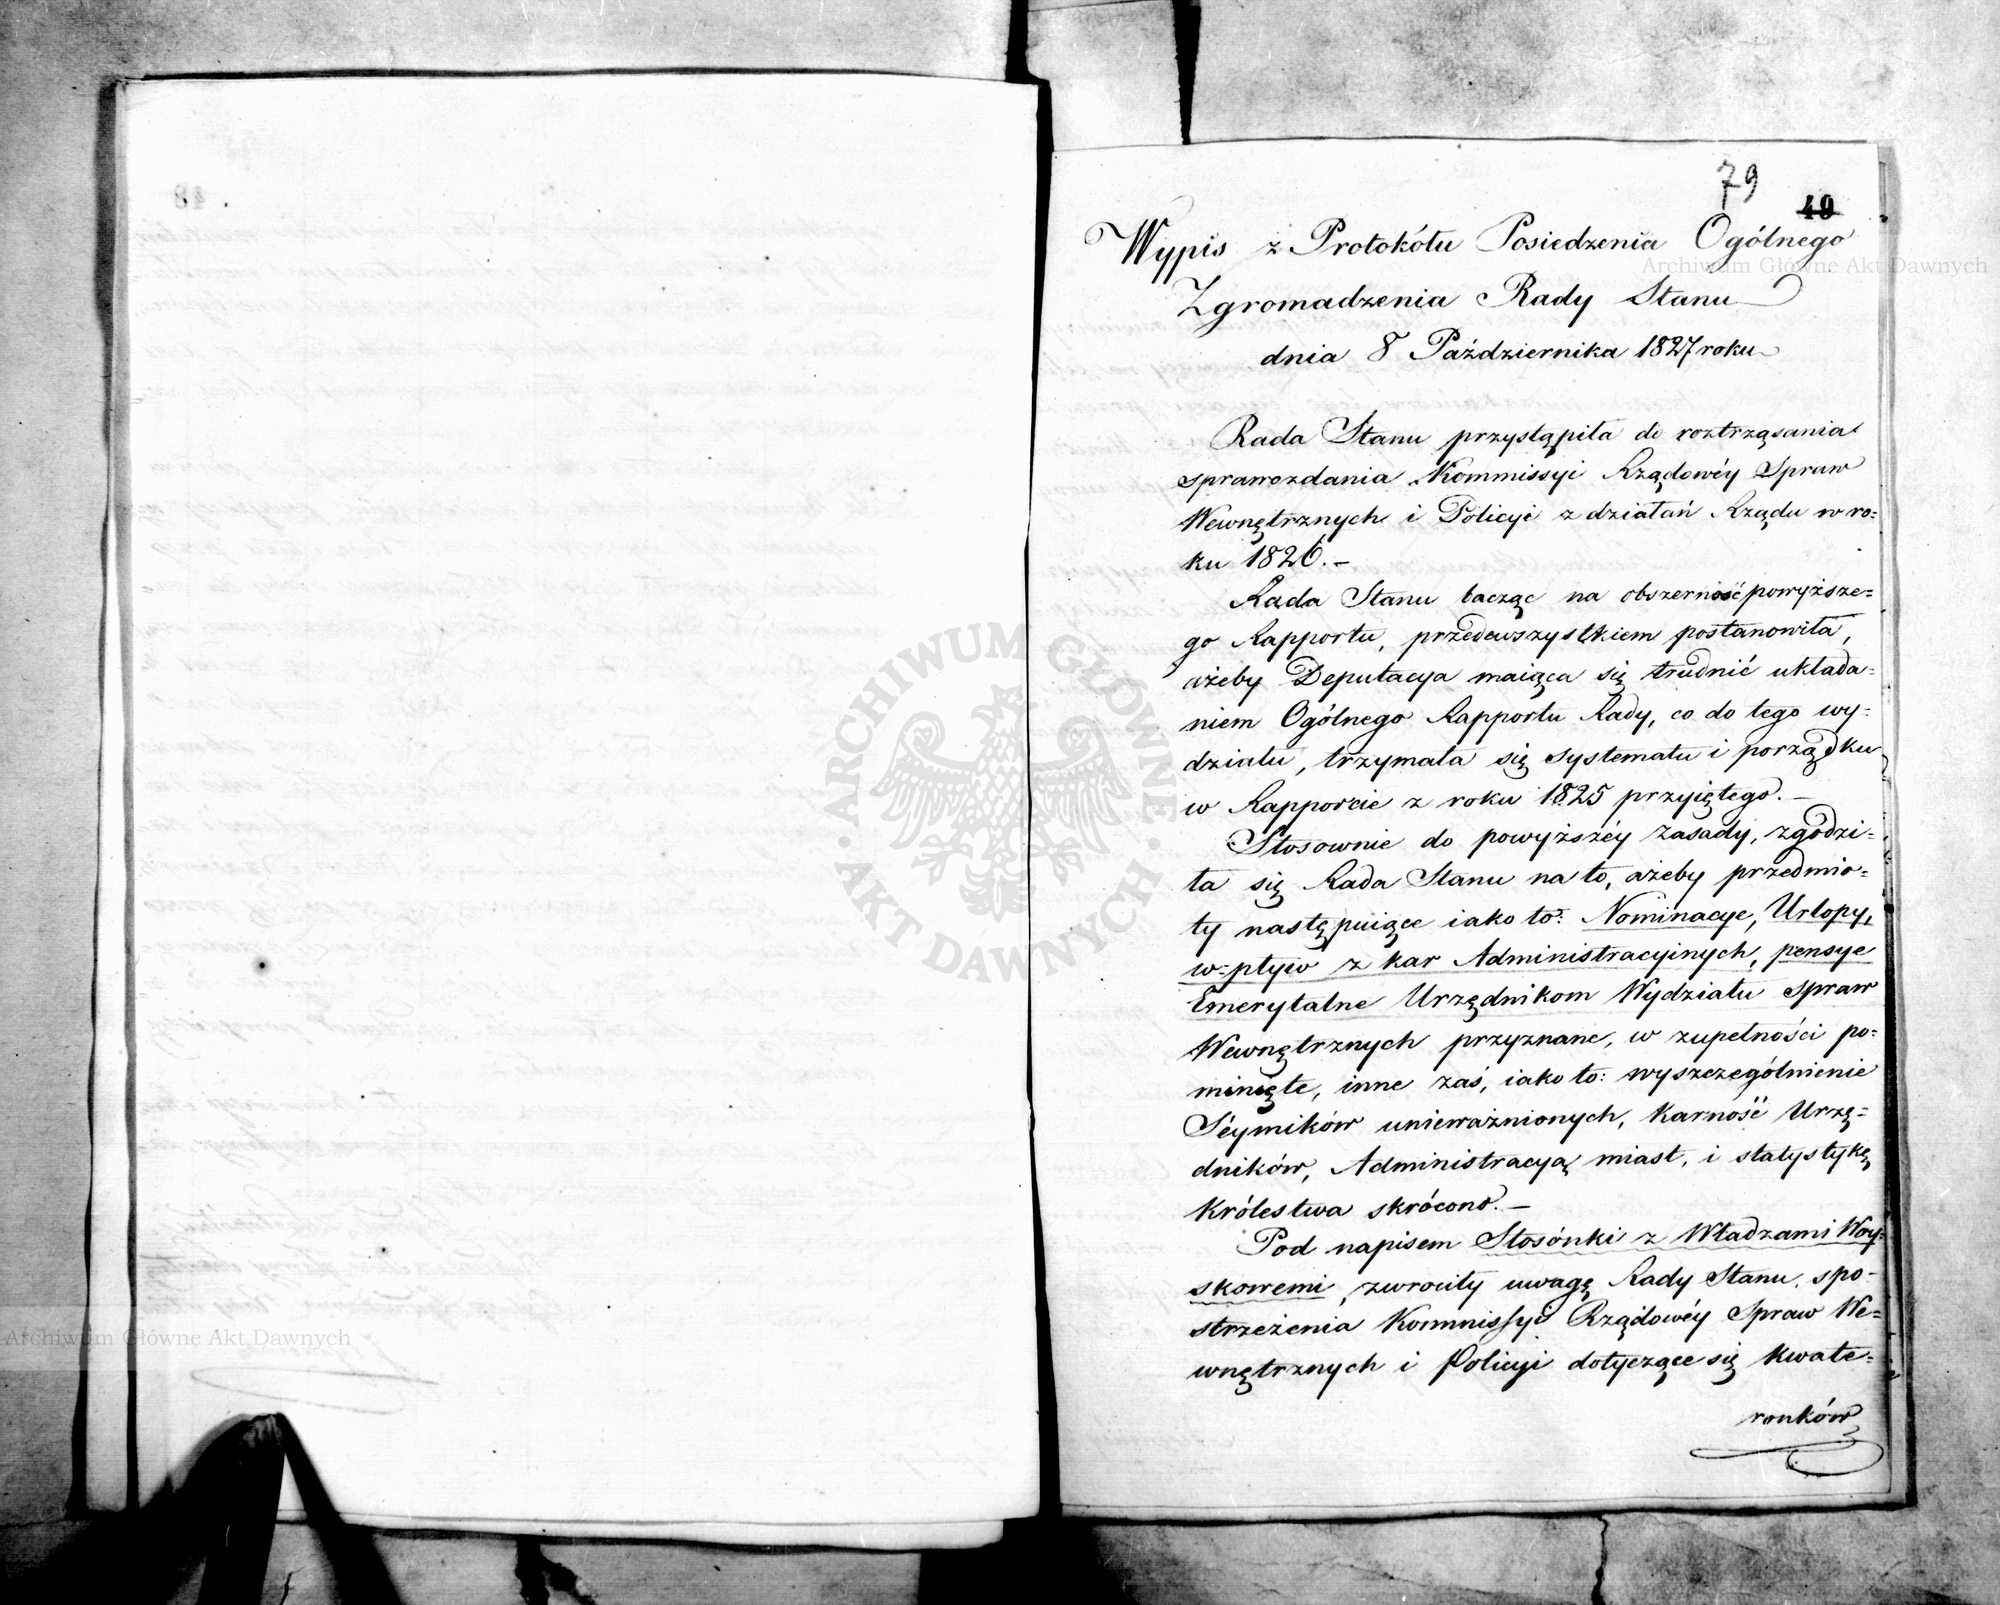 79
49
Wypis z Protokółu Posiedzenia Ogólnego
Zgromadzenia Rady Stanu
dnia 8 Października 1827 roku
Rada Stanu przystąpiła do roztrząsania
sprawozdania Kommissyi Rządowéy Spraw
Wewnętrznych i Policyi z działań Rządu w ro=
ku 1826.–
Rada Stanu bacząc na obszerność powyższe=
go Rapportu, przedewszystkiem postanowiła,
ażeby Deputacya maiąca się trudnić układa=
niem Ogólnego Rapportu Rady, co do tego wy=
działu, trzymała się systematu i porządku
w Rapporcie z roku 1825 przyiętego.–
Stosownie do powyższéy zasady, zgodzi=
ła się Rada Stanu na to, ażeby przedmio=
ty następuiące iako to: Nominacye, Urlopy,
w=pływ z kar Administracyinych, pensye
Emerytalne Urzędnikom Wydziału Spraw
Wewnętrznych przyznane, w zupełności po=
minięte, inne zaś, iako to: wyszczególnienie
Séymików unieważnionych, Karność Urzę=
dników, Administracyą miast, i statystykę
Królestwa skrócono.–
Pod napisem Stosónki z Władzami Woy=
skowemi, zwrociły uwagę Rady Stanu, spo=
strzeżenia Kommissyi Rządowéy Spraw We=
wnętrznych i Policyi dotyczące się kwate=
ronków
48
Archiwum Główne Akt Dawnych
Archiwum Główne Akt Dawnych
ARCHIWUM GŁÓWNE AKT DAWNYCH